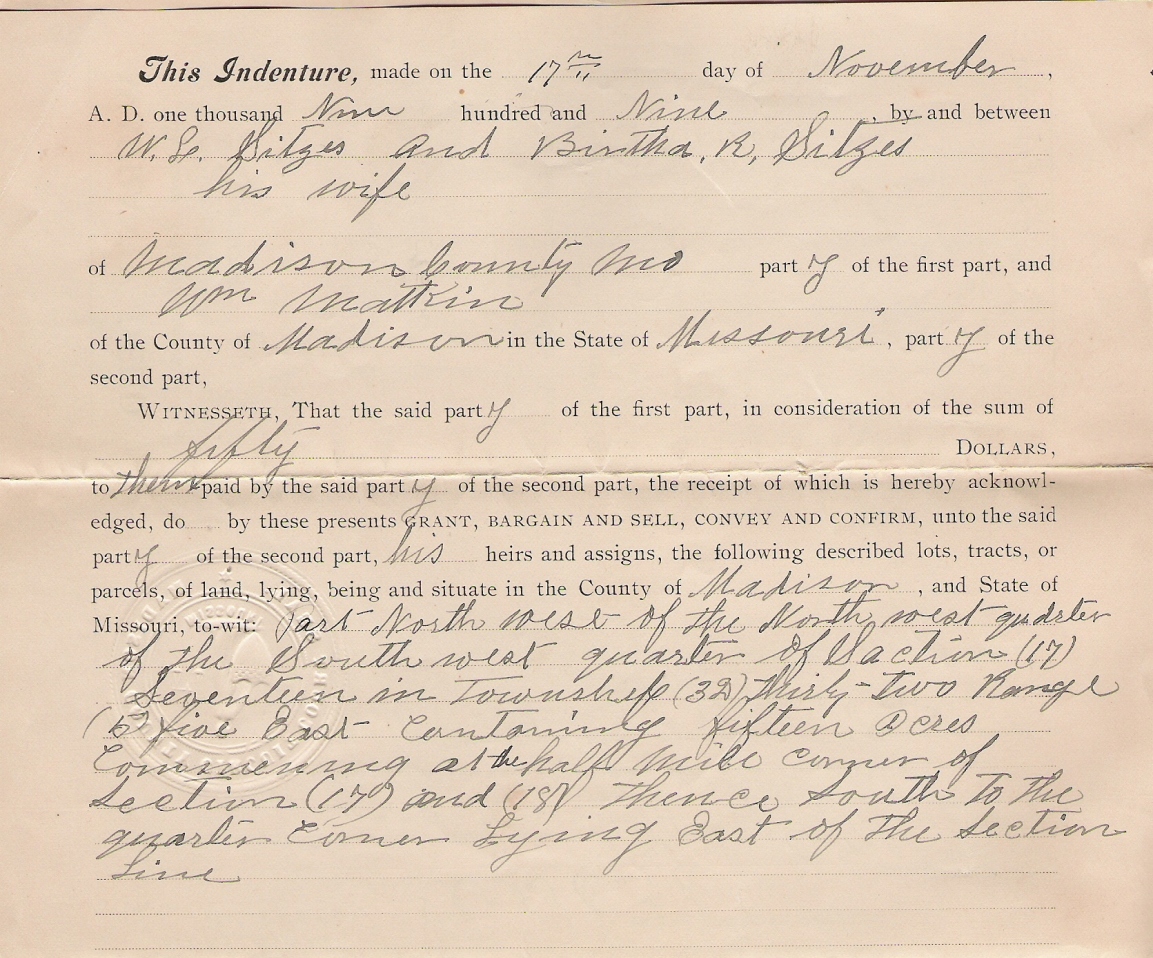 This Indenture, made on the 17th day of November,
A. D. one thousand Nine hundred and Nine, by and between
W. L. Sitzes and Birtha, R, Sitzes
his wife
of Madison County Mo party of the first part, and
Wm Matkin
of the County of Madison in the State of Missouri, party of the
second part,
WITNESSETH, That the said party of the first part, in consideration of the sum of
fifty DOLLARS,
to them paid by the said party of the second part, the receipt of which is hereby acknowl-
edged, do by these presents GRANT, BARGAIN AND SELL, CONVEY AND CONFIRM, unto the said
party of the second part, his heirs and assigns, the following described lots, tracts, or
parcels, of land, lying, being and situate in the County of Madison, and State of
Missouri, to-wit: Part North west of the North west quarter
of the South west quarter of Saction (17)
Seventeen in Township (32) Thirty-two Range
(5) five East Contaning fifteen acres
Commencing at the half Mile corner of
Section (17) and (18) thence South to the
quarter Corner Lying East of the Section
Line